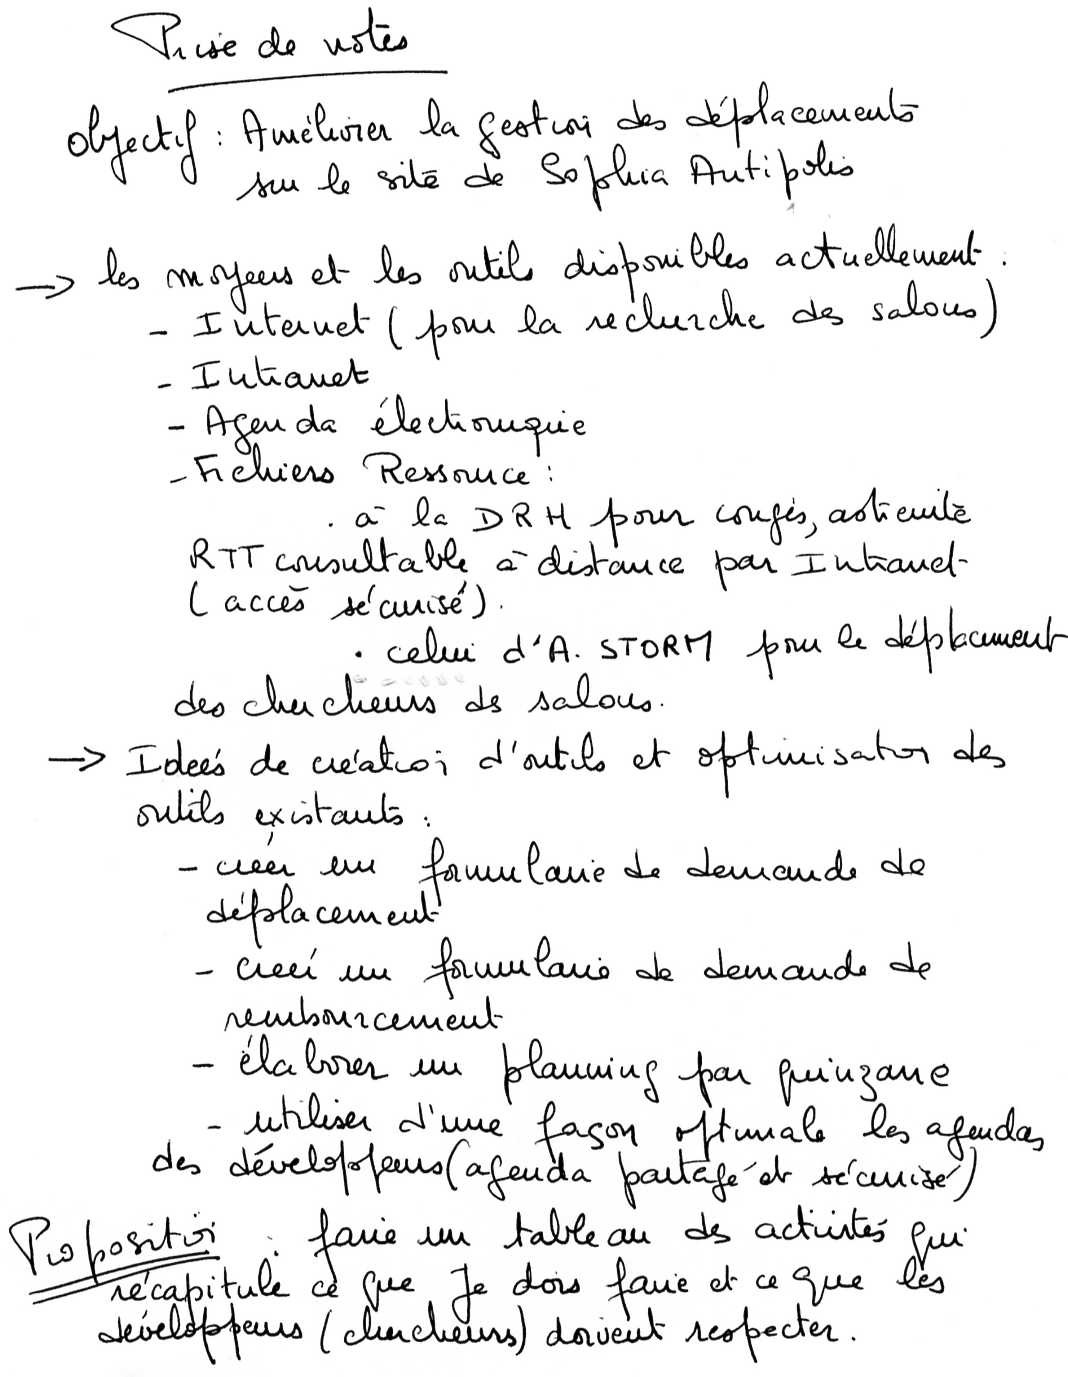 Prise de notes
Objectif : Améliorer la gestion des déplacements
sur le site de Sophia Antipolis
→ les moyens et les outils disponibles actuellement :
- Internet (pour la recherche des salons)
- Intranet
- Agenda électronique
- Fichiers Ressource :
. à la DRH pour congés, astreinte
RTT consultable à distance par Intranet
(accès sécurisé).
. celui d'A. STORM pour le déplacement
des chercheurs ds salons.
→ Idées de création d'outils et optimisation des
outils existants :
- créer un formulaire de demande de
déplacement
- créer un formulaire de demande de
remboursement
- élaborer un planning par quinzaine
- utiliser d'une façon optimale les agendas
des développeurs (agenda partagé et sécurisé)
Proposition : faire un tableau des activités qui
récapitule ce que je dois faire et ce que les
développeurs (chercheurs) doivent respecter.